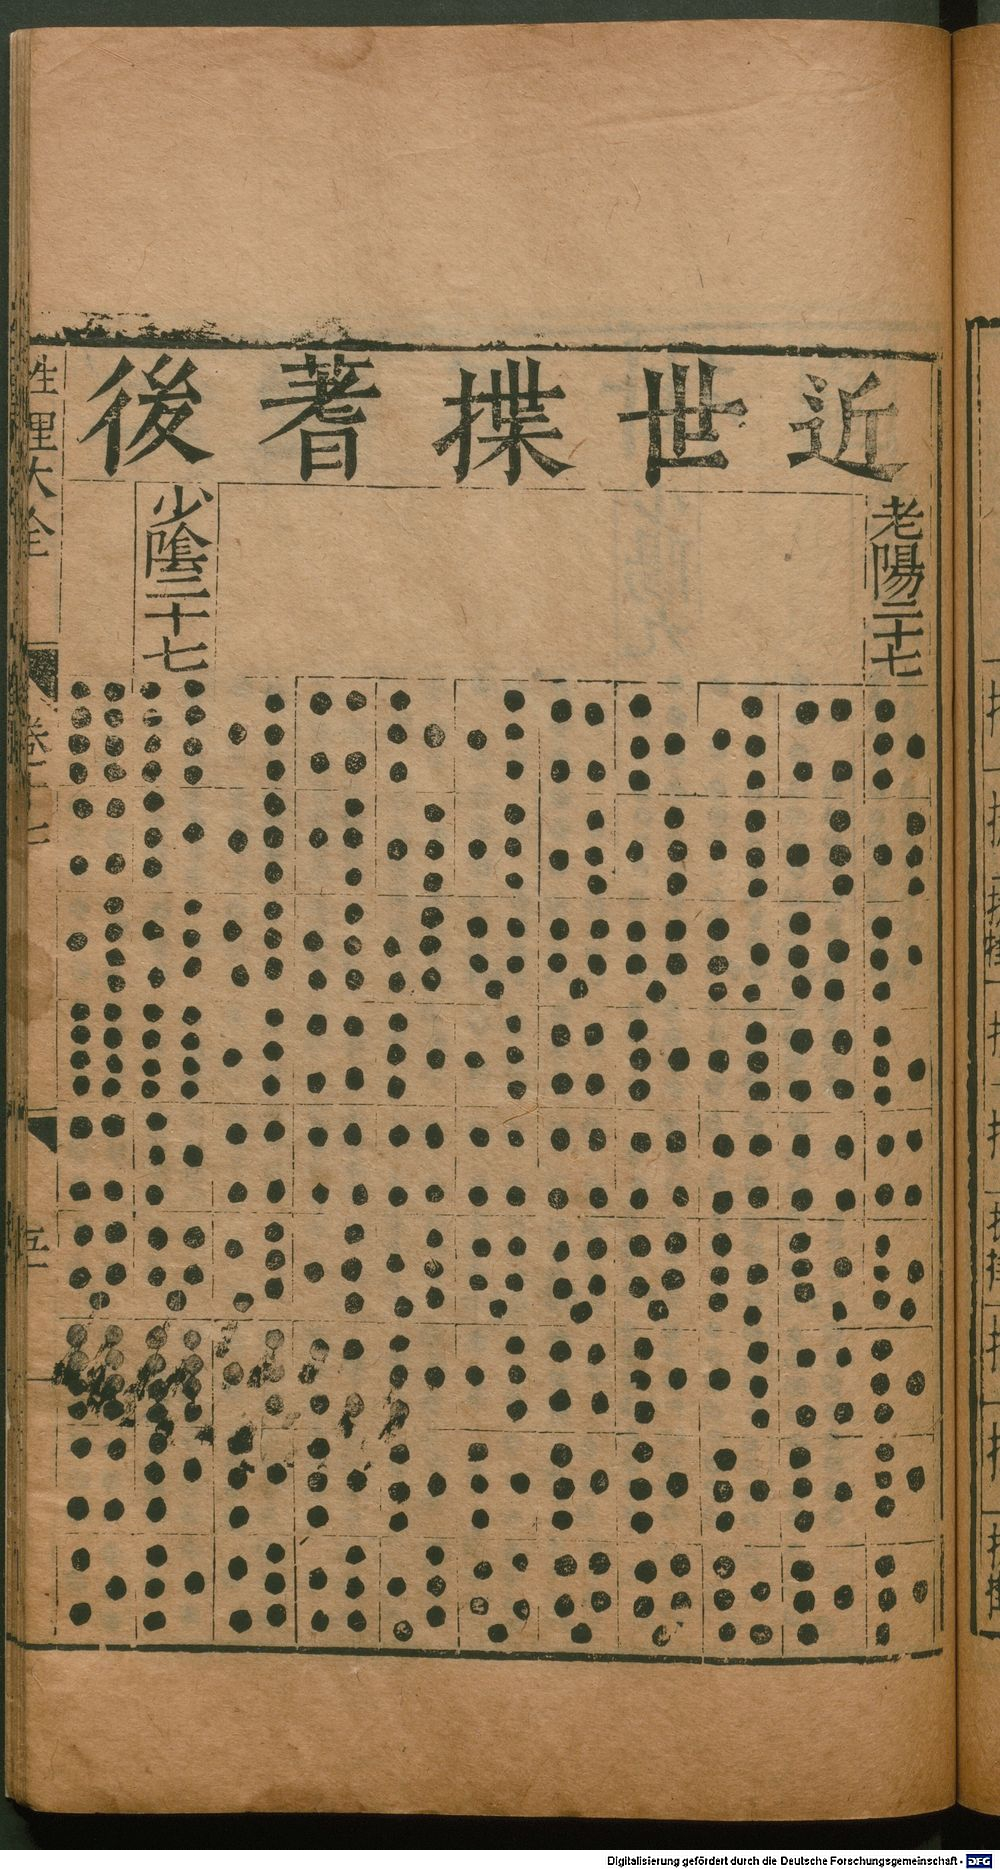 近世揲蓍後
老陽二十七
少陰二十七
性理大全
卷二十七
五
Digitalisierung gefördert durch die Deutsche Forschungsgemeinschaft - DFG